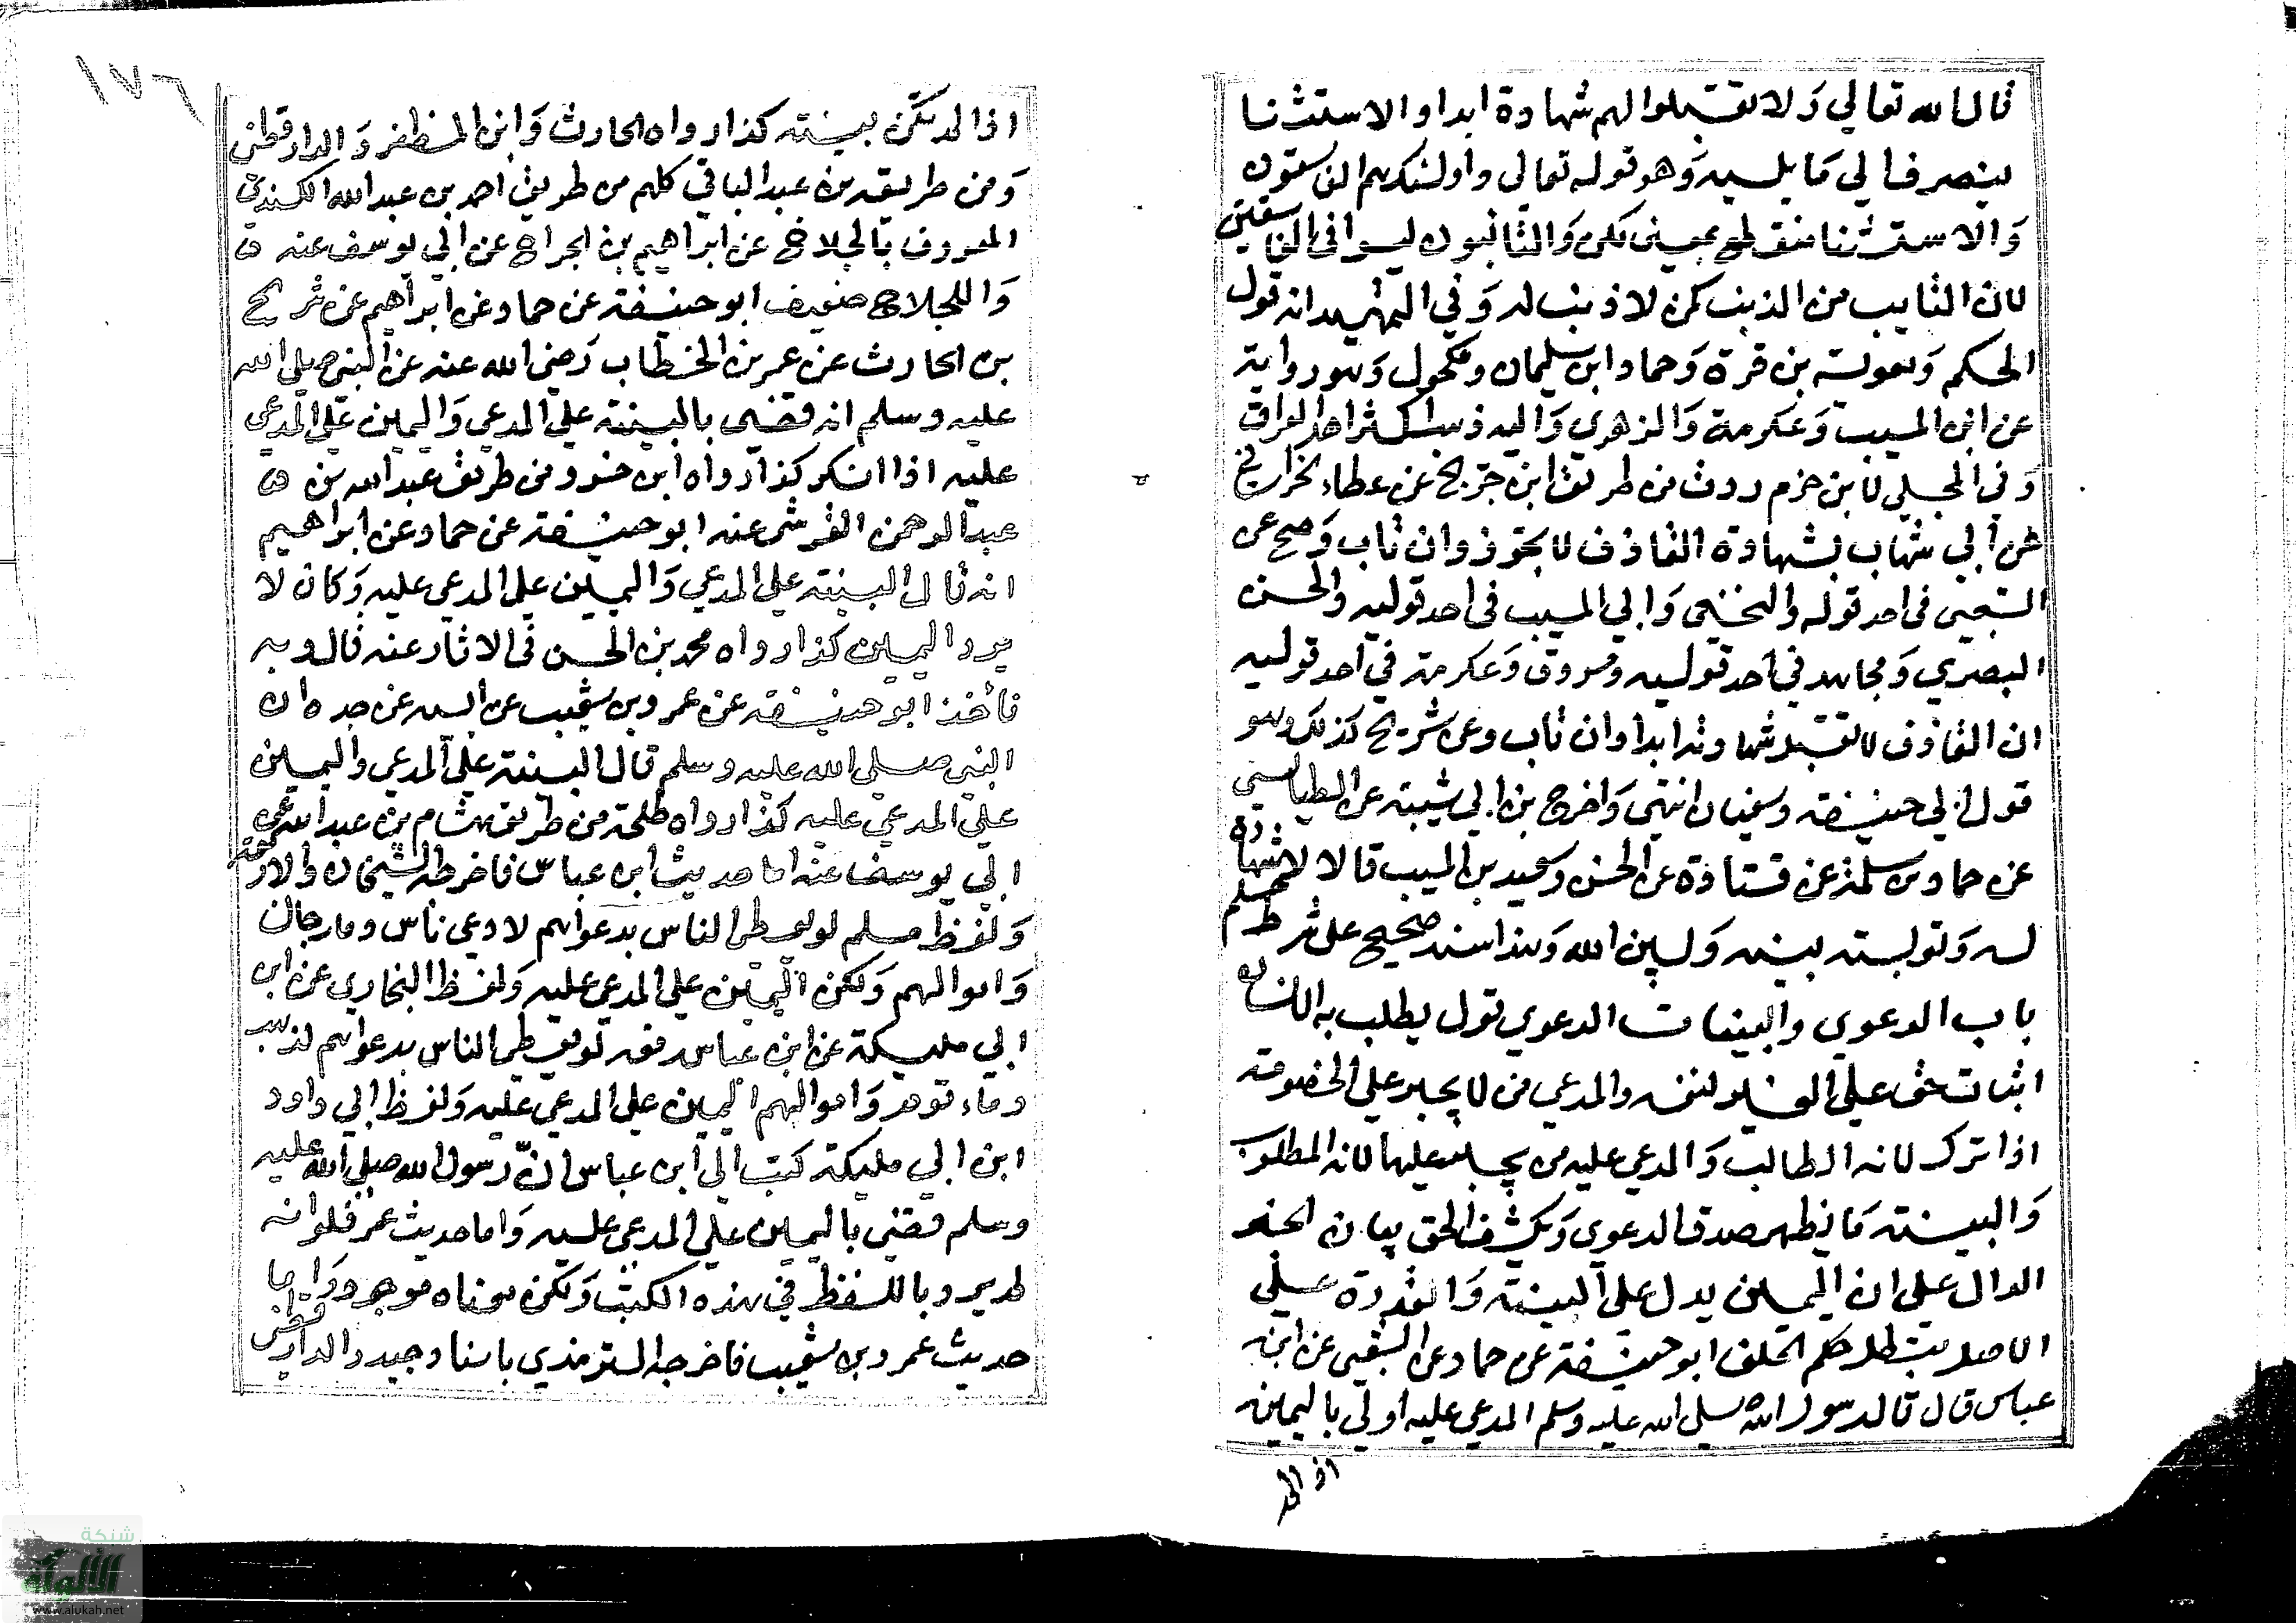 قال الله تعالي وَلا تقبلوا لهم شهادة ابدا والاستثنا
ينصرف الي مَا يليه وَهو قوله تعالي واولئك هم الفاسقون
وَالاستثنا منقطع بمعنى لكن وَالتائبون ليسوا في الفاسقين
لان التايب من الذنب كمن لا ذنب له وَفي التمهيد انه قول
الحكم وَمعوية بن قرة وَحماد ابن سليمان ومكحول وَهو رواية
عن ابن المسيب وَعكرمة وَالزهري وَاليه ذهب اكثر اهل العراق
وَفي المحلي لابن حزم روى من طريق ابن جريج عن عطاء الخراساني
عن ابي شهاب شهادة القاذف لا تجوز وان تاب وَصح عن
الشعبي في احد قوله والنخعي وَابي المسيب في احد قوليه والحسن
البصري وَمجاهد في احد قوليه ومسروق وَعكرمة في احد قوليه
ان القاذف لا تقبل شهادته ابدا وان تاب وعن شريح كذلك وهو
قول ابي حنيفة وسفيان انتهى وَاخرج بن ابي شيبة عن الطيالسي
عن حماد بن سلمة عن قتادة عن الحسن وسعيد بن المسيب قالا لا شهادة
له وَتوبته بينه وَبين الله وَهذا سند صحيح على شرط مسلم
باب الدعوي والبينات الدعوي قول يطلب به الانسان
اثبات حق علي الغير لنفسه والمدعي من لا يجبر علي الخصومة
اذا ترك لانه الطالب وَالمدعي عليه من يجبر عليها لانه المطلوب
وَالبينة مَا يظهر صدق الدعوي وَيكشف الحق بيان الخبر
الدال علي ان اليمين بدل علي البينة وَالقدرة علي
الاصل يبطل حكم الخلف ابو حنيفة عن حماد عن الشعبي عن ابن
عباس قال قال رسول الله صلي الله عليه وسلم المدعي عليه اولي باليمين
اذا لم
١٧٦
اذا لم تكن بينة كذا رواه الحارث وَابن المظفر وَالدارقطني
وَمن طريقه بن عبد الباقي كلهم من طريق احمد بن عبد الله الكندي
المعروف بالجلاج عن ابراهيم بن الجراح عن ابي يوسف عنه ق
وَاللجلاج ضعيف ابو حنيفة عن حماد عن ابراهيم عن شريح
بن الحارث عن عمر بن الخطاب رَضي الله عنه عن النبي صلي الله
عليه وسلم انه قضي بالبينة علي المدعي وَاليمين علي المدعي
عليه اذا انكر كذا رواه ابن خسرو من طريق عبد الله بن
عبد الرحمن القرشي عنه ابو حنيفة عن حماد عن ابراهيم
انه قال البينة علي المدعي وَاليمين علي المدعي عليه وَكان لا
يرد اليمين كذا رواه محمد بن الحسن في الاثار عنه قال وبه
نأخذ ابو حنيفة عن عمرو بن شعيب عن ابيه عن جده ان
النبي صلي الله عليه وسلم قال البينة علي المدعي واليمين
علي المدعي عليه كذا رواه طلحة من طريق هشام بن عبد الله عن
ابي يوسف عنه اما حديث ابن عباس فاخرجه الشيخان والاربعة
وَلفظ مسلم لو يعطي الناس بدعواهم لادعي ناس دماء رجال
وَاموالهم وَلكن اليمين علي المدعي عليه وَلفظ البخاري عن ابن
ابي مليكة عن ابن عباس رفعه لو يعطي الناس بدعواهم لذهب
دماء قوم وَاموالهم اليمين علي المدعي عليه وَلفظ ابي داود
ابن ابي مليكة كتب الي ابن عباس انّ رسول الله صلي الله عليه
وسلم قضي باليمين علي المدعي عليه وَاما حديث عمر فلو انه
لم يرد باللفظ في هذه الكتب وَلكن معناه موجود وَاما
حديث عمرو بن شعيب فاخرجه الترمذي باسناد جيد والدارقطني
شبكة
الألوكة
www.alukah.net